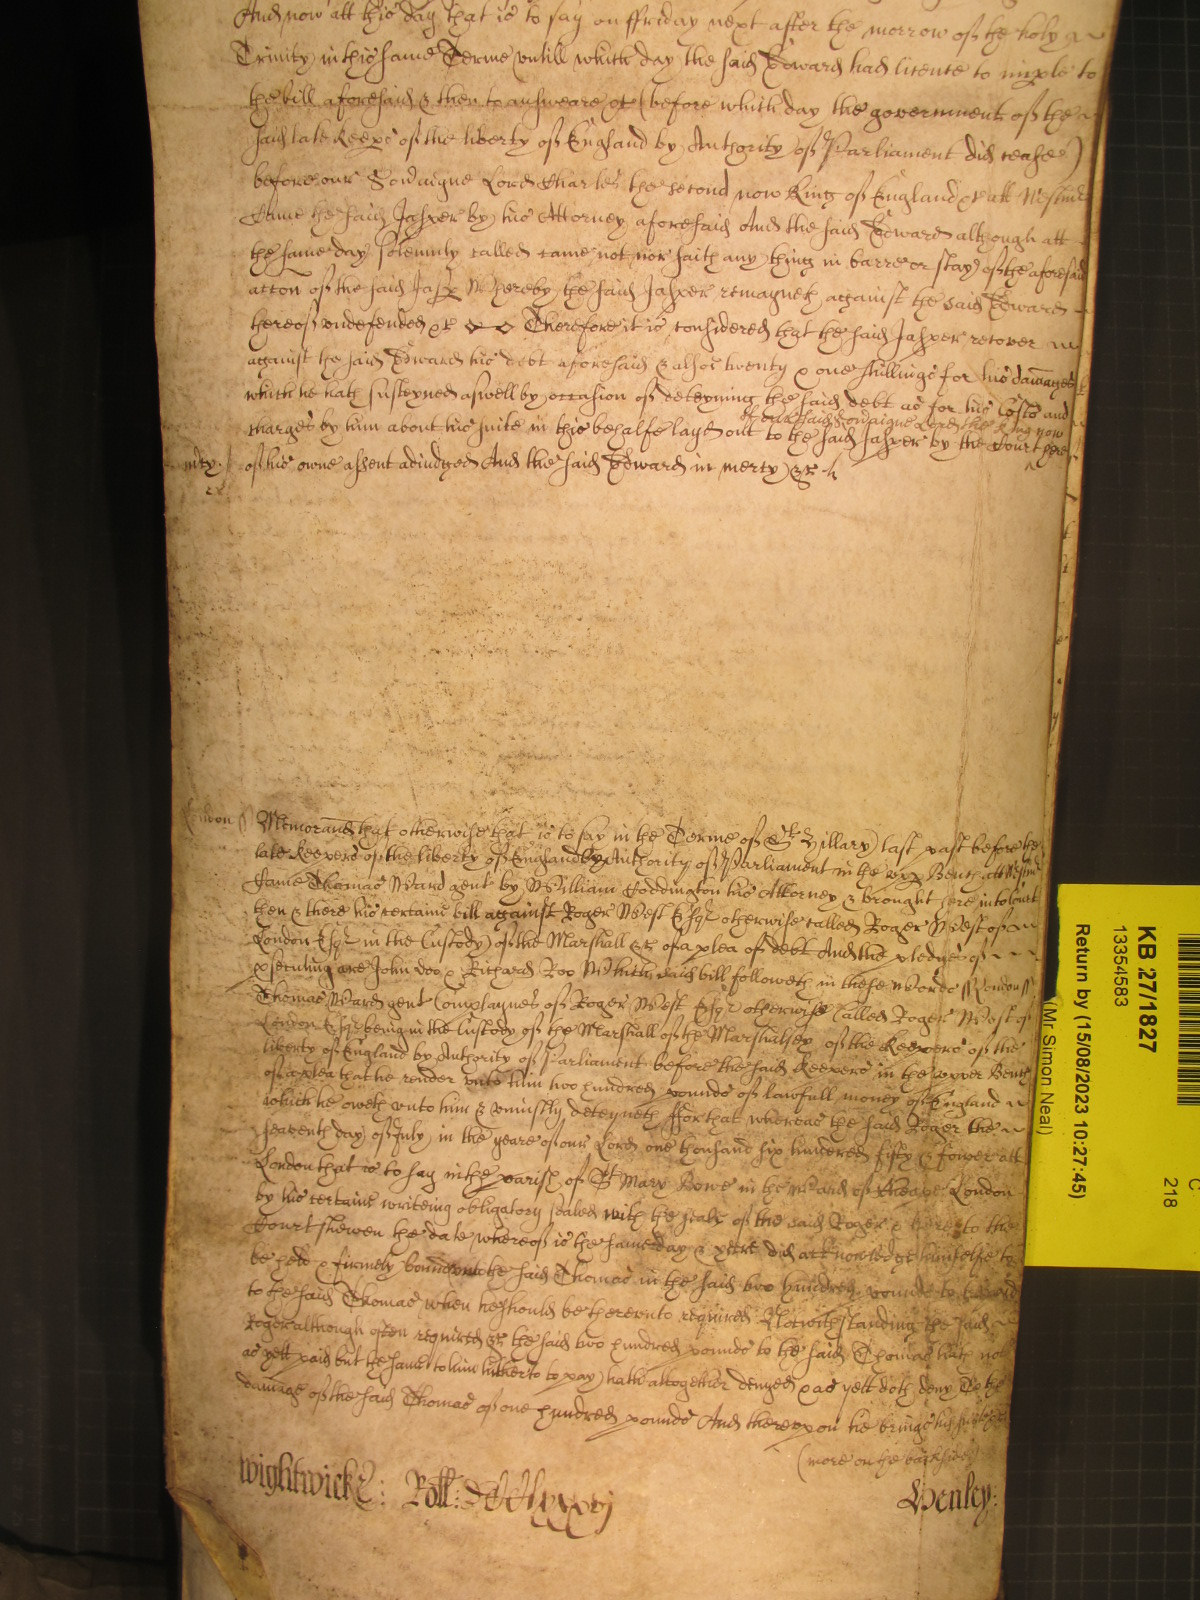 And now att this day that is to say on ffriday next after the morrow of the holy
Trinity in this same Terme untill which day the said Edward had licence to imple to
the bill aforesaid & then to answeare &c (before which day the government of the
said late Keeps of the liberty of England by Authority of Parliament did cease)
before our Sovaigne Lord Charles the second now King of England &c att Westmr
Came the said Jasper by his Attorney aforesaid And the said Edward although att
the same day solemnly called came not nor saith any thing in barre or stay of the aforesaid
accon of the said Jasp Whereby the said Jasper remayneth against the said Edward
thereof undefended &c Therefore it is considered that the said Jasper recover
against the said Edward his debt aforesaid & alsoe twenty & one shillings for his damages
which he hath susteyned aswell by occasion of deteyning the said debt as for his Costs and
of our said Sovaigne Lord the King now
charges by him about his suite in this behalfe layd out to the said Jasper by the Court here
mcy. of his owne assent adiudged And the said Edward in mercy &c
London Memorand that otherwise that is to say in the Terme of St Hillary last past before the
late Keepers of the liberty of England by Authority of Parliament in the upp Bench att Westmr
Came Thomas Ward gent by William Coddington his Attorney & brought here into Court
then & there his certaine bill against Roger West Esqr otherwise called Roger West of
London Esqr in the Custody of the Marshall &c of a plea of debt And the pledges of
psecuting are John Doo & Richard Roo Which said bill followeth in these Words London
Thomas Ward gent Complaynes of Roger West Esqr otherwise Called Roger West of
London Esqr being in the Custody of the Marshall of the Marshalsey of the Keepers of the
liberty of England by Authority of Parliament before the said Keepers in the upper Bench
of a plea that he render unto him two hundred pounds of lawfull money of England
which he oweth unto him & uniustly deteyneth ffor that whereas the said Roger the
seaventh day of July in the yeare of our Lord one thousand six hundred fifty & fower att
London that is to say in the parish of St Mary Bowe in the Ward of Cheape London
by his certaine writeing obligatory sealed with the seale of the said Roger & here to the
Court shewen the date whereof is the same day & yeare did acknowledge himselfe to
be held & firmely bound unto the said Thomas in the said two hundred pounds to be paid
to the said Thomas when he should be thereunto required Notwithstanding the said
Roger although often required &c the said two hundred pounds to the said Thomas hath not
as yett paid but the same to him hitherto to pay hath altogether denyed & as yett doth deny To the
damage of the said Thomas of one hundred pounds And thereupon he brings his suite &c
(more on the backside)
Wightwicke: Roll: Henley:
KB 27/1827
13354583
Return by (15/08/2023 10:27:45)
(Mr Simon Neal)
C
218